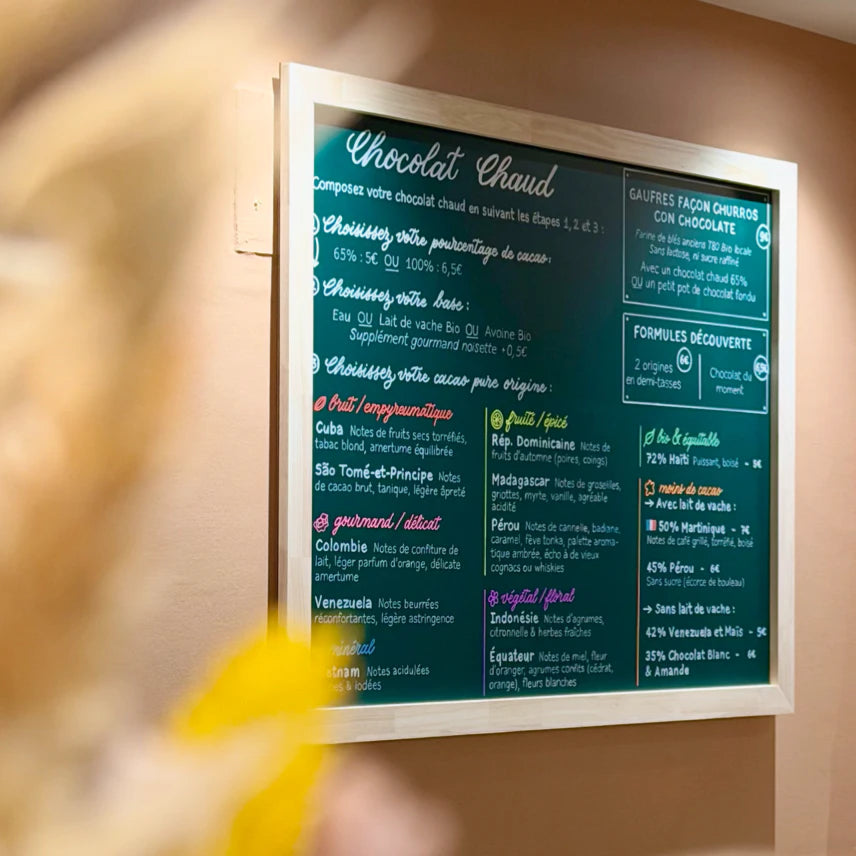 Chocolat Chaud
Composez votre chocolat chaud en suivant les étapes 1, 2 et 3 :
Choisissez votre pourcentage de cacao :
65% : 5€ OU 100% : 6,5€
Choisissez votre base :
Eau OU Lait de vache Bio OU Avoine Bio
Supplément gourmand noisette +0,5€
Choisissez votre cacao pure origine :
brut / empyreumatique
Cuba Notes de fruits secs torréfiés,
tabac blond, amertume équilibrée
São Tomé-et-Principe Notes
de cacao brut, tanique, légère âpreté
gourmand / délicat
Colombie Notes de confiture de
lait, léger parfum d'orange, délicate
amertume
Venezuela Notes beurrées
réconfortantes, légère astringence
minéral
Notes acidulées
& iodées
fruité / épicé
Rép. Dominicaine Notes de
fruits d'automne (poires, coings)
Madagascar Notes de groseilles,
griottes, myrte, vanille, agréable
acidité
Pérou Notes de cannelle, badiane,
caramel, fève tonka, palette aroma-
tique ambrée, écho à de vieux
cognacs ou whiskies
végétal / floral
Indonésie Notes d'agrumes,
citronnelle & herbes fraîches
Équateur Notes de miel, fleur
d'oranger, agrumes confits (cédrat,
orange), fleurs blanches
GAUFRES FAÇON CHURROS
CON CHOCOLATE
9€
Farine de blés anciens T80 Bio locale
Sans lactose, ni sucre raffiné
Avec un chocolat chaud 65%
OU un petit pot de chocolat fondu
FORMULES DÉCOUVERTE
2 origines
en demi-tasses
6€
Chocolat du
moment
bio & équitable
72% Haïti Puissant, boisé - 5€
moins de cacao
→ Avec lait de vache :
50% Martinique - 7€
Notes de café grillé, torréfié, boisé
45% Pérou - 6€
Sans sucre (écorce de bouleau)
→ Sans lait de vache :
42% Venezuela et Maïs - 5€
35% Chocolat Blanc - 6€
& Amande